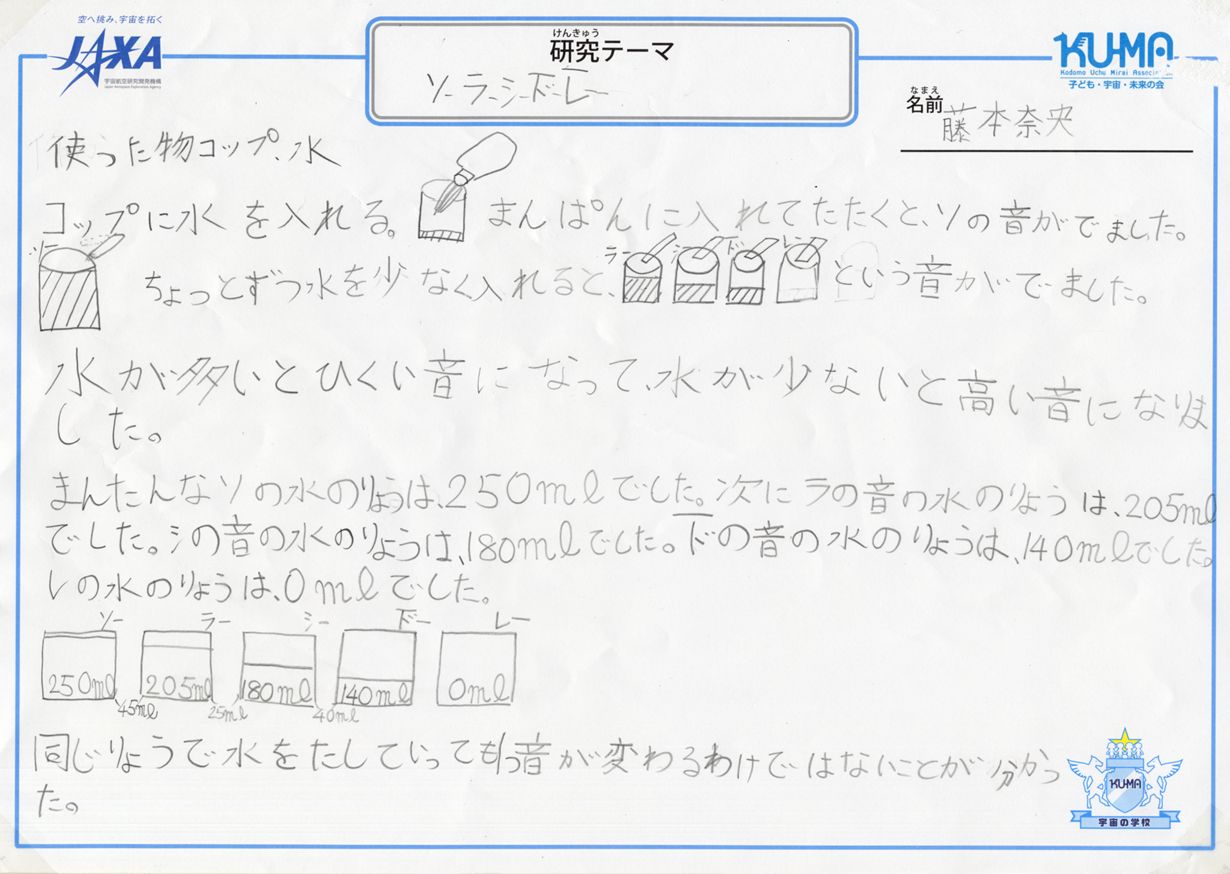 空へ挑み、宇宙を拓く
JAXA
宇宙航空研究開発機構
Japan Aerospace Exploration Agency
けんきゅう
研究テーマ
ソーラーシードーレー
KU-MA
Kodomo Uchu Mirai Associa
子ども・宇宙・未来の会
なまえ
名前
藤本奈央
使った物コップ、水
コップに水を入れる。まんぱんに入れてたたくと、ソの音がでました。
ソー
ちょっとずつ水を少なく入れると、ラー シー ドー レー という音がでました。
水が多いとひくい音になって、水が少ないと高い音になりま
した。
まんたんなソの水のりょうは、250mlでした。次にラの音の水のりょうは、205ml
でした。シの音の水のりょうは、180mlでした。ドの音の水のりょうは、140mlでした。
レの水のりょうは、0mlでした。
ソー ラー シー ドー レー
250ml 205ml 180ml 140ml 0ml
45ml 25ml 40ml
同じりょうで水をたしていっても1つ音が変わるわけではないことが分かっ
た。
KU-MA
宇宙の学校